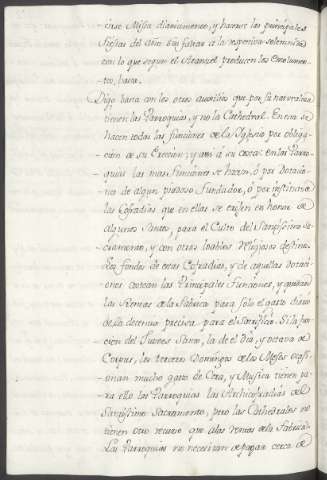 cirse Missa diariamente, y hacerse las principales
Fiestas del Año sin faltar a la respectiva solemnidad
con lo que segun el Arancel producen los Emolumen-
tos, basta.
Digo basta con los otros auxilios que por su naturaleza
tienen las Parroquias, y no la Cathedral. En esta se
hacen todas las funciones de la Yglesia por obliga-
cion de su Ereccion, y assi à su costa: en las Parro-
quias las mas funciones se hacen, ó por Dotacio-
nes de algun piadoso Fundador, ó por instituto de
las Cofradias que en ellas se erijen en honor de
algunos Santos, para el Culto del Santissimo Sa-
cramento, y con otros loables Religiosos destinos.
Los fondos de estas Cofradias, y de aquellas Dotaci-
ones costean las Principales Funciones, y quedan
las Rentas de la Fabrica para solo el gasto diario
de la decencia precisa para el Sacrificio. Si la fun-
cion del Jueves Santo, la de el dia, y octava de
Corpus, los terceros Domingos de los Meses ocasi-
onan mucho gasto de Cera, y Musica tienen pa-
ra ello las Parroquias las Archicofradias del
Santissimo Sacramento, pero las Cathedrales no
tienen otro recurso que a las rentas de la Fabrica.
Las Parroquias no necesitan de pagar cerca de